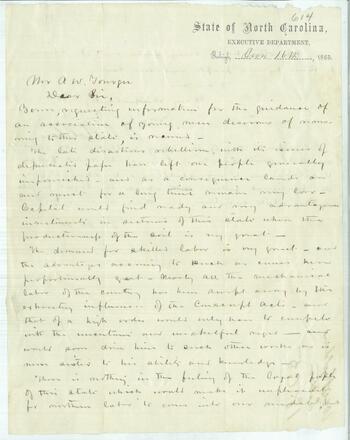 614
State of North Carolina,
EXECUTIVE DEPARTMENT,
Raleigh, June 16th, 1865.
Mr A. W. Tourgee
Dear Sir,
Yours, requesting information for the guidance of
an association of young men desirous of
to this state, is received —
The late disastrous rebellion, with its issues of
depreciated paper has left our people generally
impoverished — and as a consequence lands are
and must for a long time remain very low —
Capital would find ready and very advantageous
investments in sections of this state where the
productiveness of the soil is very great —
The demand for skilled labor is very great — and
the advantages accruing to such as
proportionally great — Nearly all the mechanical
labor of the country has been swept away by the
exhausting influence of the Conscript Acts — and
that of a high order would only have to compete
with the and unskillful negro — and
would soon drive him to such other works as is
more suited to his ability and knowledge —
There is nothing in the feeling of the loyal people
of this state which would make it unpleasant
for northern labor to come into our midst, but